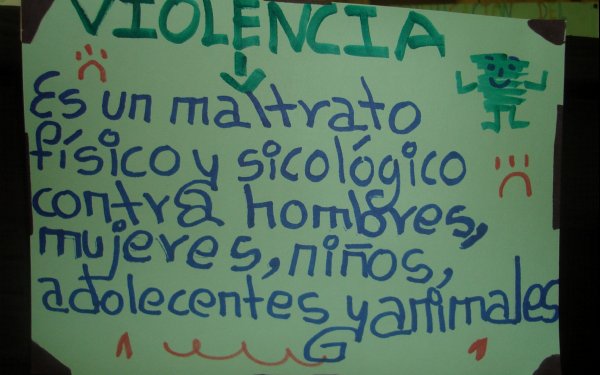 VIOLENCIA
Es un maltrato
físico y sicológico
contra hombres,
mujeres, niños,
adolecentes y animales
G